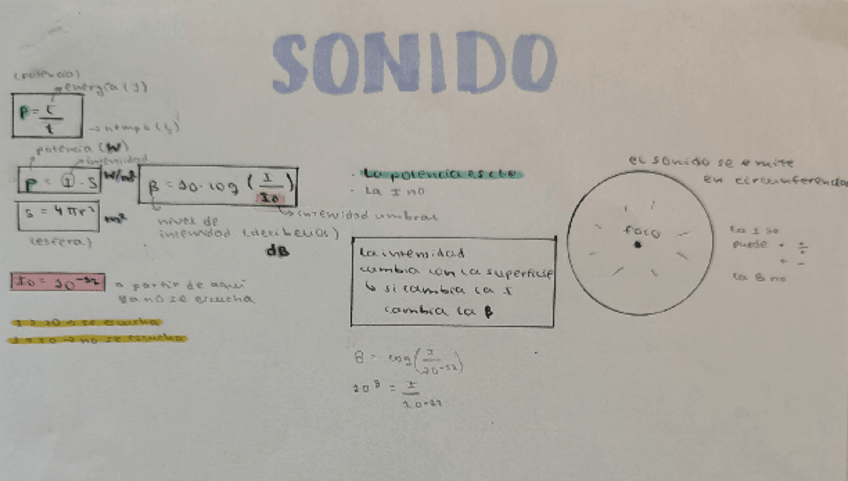 SONIDO
(potencia)
energía (J)
P = E / t
→ tiempo (s)
potencia (W)
intensidad
P = I · S W/m²
S = 4πr² m²
(esfera)
β = 10 · log (I / I0)
→ intensidad umbral
nivel de
intensidad (decibelios)
dB
I0 = 10⁻¹²
a partir de aquí
ya no se escucha
I > I0 → se escucha
I < I0 → no se escucha
· La potencia es cte
· La I no
La intensidad
cambia con la superficie
↳ si cambia la I
cambia la β
8 = log (I / 10⁻¹²)
10⁸ = I / 10⁻¹²
el sonido se emite
en circunferencia
foco
La I se
puede · ÷
+ -
La B no